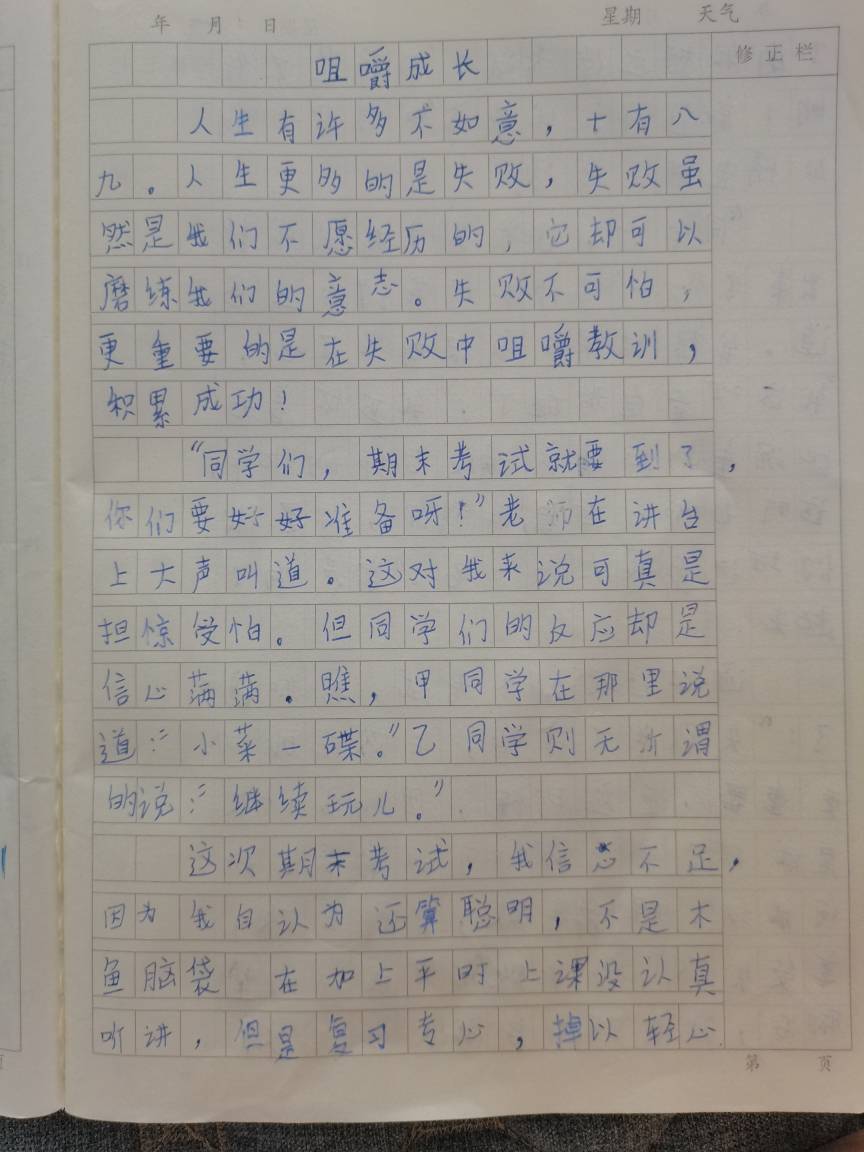 年 月 日 星期 天气
修正栏
咀嚼成长
人生有许多不如意，十有八
九。人生更多的是失败，失败虽
然是我们不愿经历的，它却可以
磨练我们的意志。失败不可怕，
更重要的是在失败中咀嚼教训，
积累成功！
“同学们，期末考试就要到了，
你们要好好准备呀！”老师在讲台
上大声叫道。这对我来说可真是
担惊受怕。但同学们的反应却是
信心满满。瞧，甲同学在那里说
道：“小菜一碟。”乙同学则无所谓
的说：“继续玩儿。”
这次期末考试，我信心不足，
因为我自认为还算聪明，不是木
鱼脑袋 在加上平时上课没认真
听讲，但是复习专心，掉以轻心
第 页